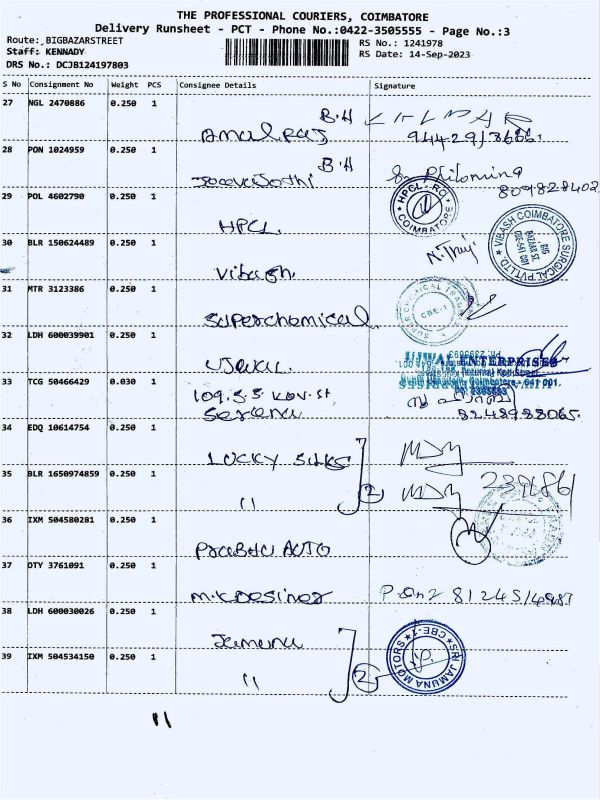 THE PROFESSIONAL COURIERS, COIMBATORE
Delivery Runsheet - PCT - Phone No.:0422-3505555 - Page No.:3
Route: BIGBAZARSTREET
RS No.: 1241978
Staff: KENNADY
RS Date: 14-Sep-2023
DRS No.: DCJB124197803
S No Consignment No Weight PCS Consignee Details Signature
27 NGL 2470886 0.250 1 Amalraj B.H
28 PON 1024959 0.250 1 B.H Philomina
29 POL 4602790 0.250 1 HPCL. HPCL-RO COIMBATORE
30 BLR 150624489 0.250 1 Vibash. VIBASH COIMBATORE SURGICAL PVT LTD. BIG BAZAAR ST. CBE-641 001
31 MTR 3123386 0.250 1 Superchemical CBE-1
32 LDH 600039901 0.250 1 Ujwal. ENTERPRISES
33 TCG 50466429 0.030 1 109.S.S Kov.St, 8248988065.
34 EDQ 10614754 0.250 1 LUCKY SILKS
35 BLR 1650974859 0.250 1 " 2
36 IXM 504580281 0.250 1 PRABHU AUTO
37 OTY 3761091 0.250 1 M.K Desiner
38 LDH 600030026 0.250 1 Jamuna
39 IXM 504534150 0.250 1 " 2 SRI JAMUNA MOTORS CBE-1
11